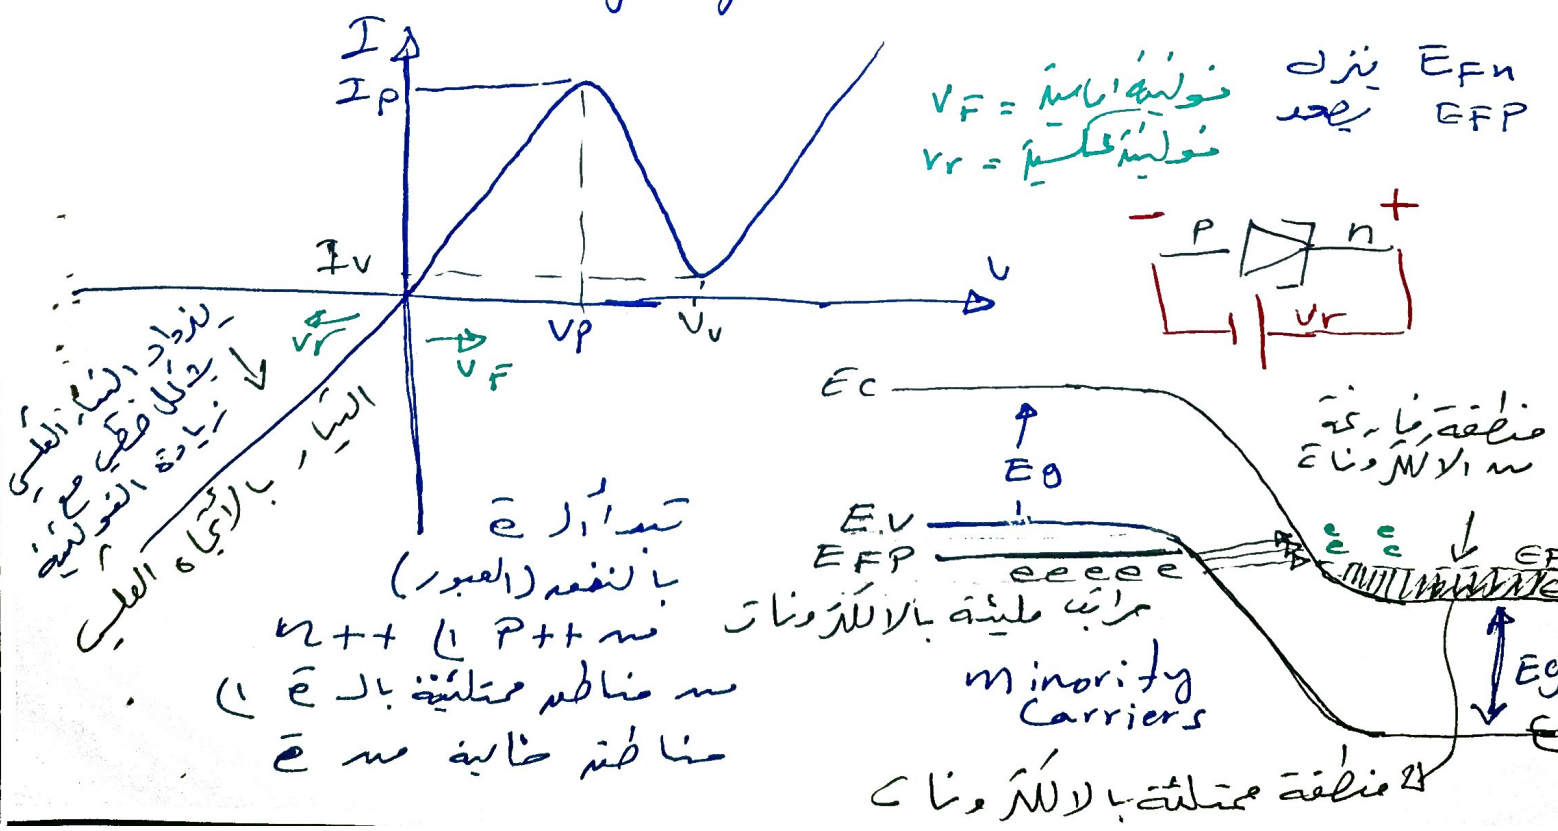 I
Ip
Iv
Vp
Vv
v
vr
VF
VF = فولتية امامية
vr = فولتية عكسية
EFn ينزل
EFP يصعد
- +
P n
vr
يزداد التيار العكسي
بشكل خطي مع
زيادة الفولتية
التيار بالاتجاه العكسي
تبدأ ال e̅
بالنفق (العبور)
من P++ الى n++
من مناطق ممتلئة بال e̅ الى
مناطق خالية من e̅
Ec
Eg
E.V
EFP
e e e e e
مراتب مليئة بالالكترونات
minority
carriers
منطقة فارغة
من الالكترونات
e e
e e
EF
Eg
منطقة ممتلئة بالالكترونات